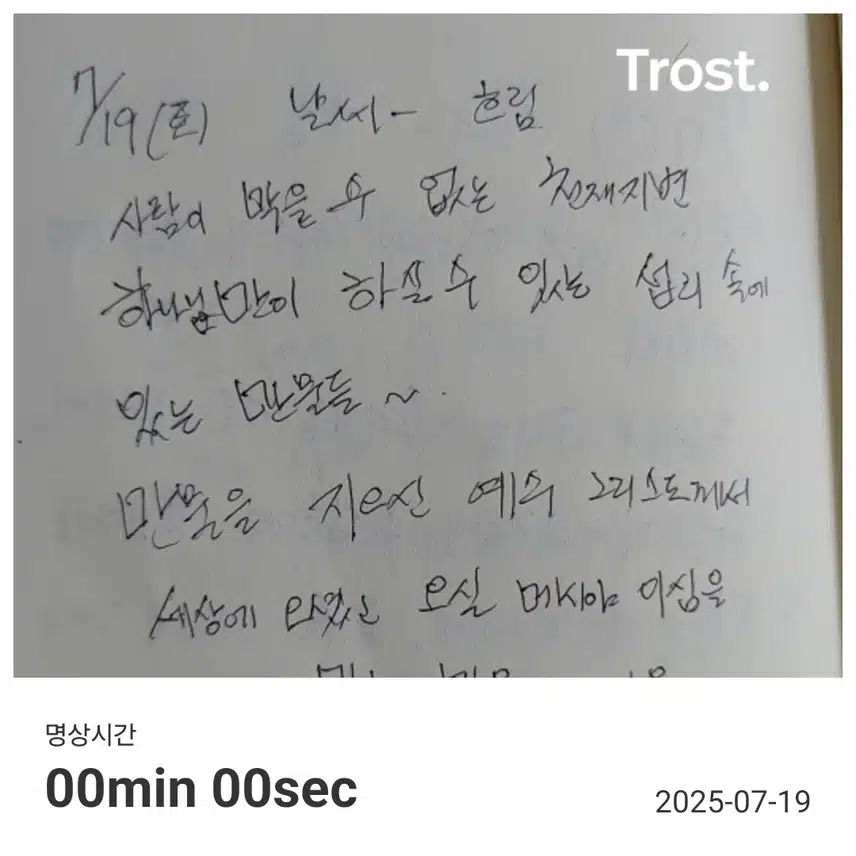 Trost.
7/19(토) 날씨- 흐림
사람이 막을 수 없는 천재지변
하나님만이 하실 수 있는 섭리 속에
있는 만물들 ~.
만물을 지으신 예수 그리스도께서
세상에 오셨고 오실 메시야 이심을
명상시간
00min 00sec
2025-07-19